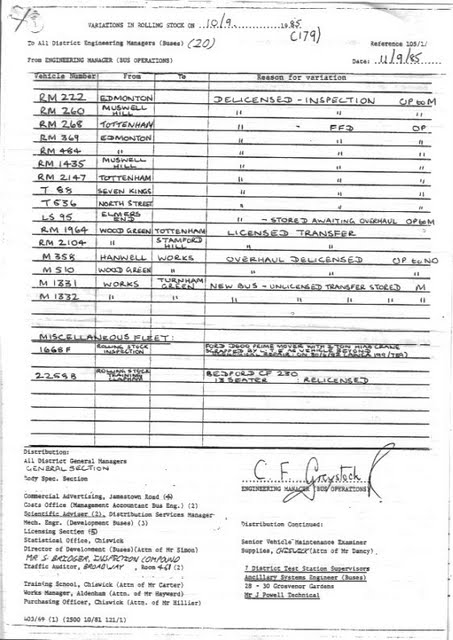 VARIATIONS IN ROLLING STOCK ON 10/9. 1985
(179)
To All District Engineering Managers (Buses) (20)
Reference 105/1/
From ENGINEERING MANAGER (BUS OPERATIONS)
Date: 11/9/85
Vehicle Number From To Reason for variation
RM 222 EDMONTON DELICENSED - INSPECTION OP to M
RM 260 MUSWELL HILL " " "
RM 268 TOTTENHAM " - FFD OP
RM 369 EDMONTON " " "
RM 484 " " " "
RM 1435 MUSWELL HILL " " "
RM 2147 TOTTENHAM " " "
T 88 SEVEN KINGS " " "
T 536 NORTH STREET " " "
LS 95 ELMERS END " - STORED AWAITING OVERHAUL OP to M
RM 1964 WOOD GREEN TOTTENHAM LICENSED TRANSFER
RM 2104 " STAMFORD HILL " "
M 358 HANWELL WORKS OVERHAUL DELICENSED OP to NO
M 510 WOOD GREEN " " " "
M 1331 WORKS TURNHAM GREEN NEW BUS - UNLICENSED TRANSFER STORED M
M 1332 " " " " " " "
MISCELLANEOUS FLEET:
1668F ROLLING STOCK INSPECTION FORD D600 PRIME MOVER WITH 2 TON HIAB CRANE
SCRAPPED BY L.T.E. AS VEHICLE BEYOND
2259B ROLLING STOCK TRAINING BEDFORD CF 280
12 SEATER : RELICENSED
Distribution:
All District General Managers
GENERAL SECTION
Body Spec. Section
C. F. Greystock
ENGINEERING MANAGER (BUS OPERATIONS)
Commercial Advertising, Jamestown Road
Costs Office (Management Accountant Bus Eng.) (2)
Scientific Adviser (2), Distribution Services Manager
Mech. Engr. (Development Buses) (3)
Licensing Section
Statistical Office, Chiswick
Director of Development (Buses)(Attn of Mr Simon)
MR S. BRIDGER, INSPECTION COMPOUND
Traffic Auditor, BROADWAY, Room
Training School, Chiswick (Attn of Mr Carter)
Works Manager, Aldenham (Attn. of Mr Hayward)
Purchasing Officer, Chiswick (Attn. of Mr Hillier)
Distribution Continued:
Senior Vehicle Maintenance Examiner
Supplies, CHISWICK (Attn of Mr Dancy)
7 District Test Station Supervisors
Ancillary Systems Engineer (Buses)
28 - 30 Grosvenor Gardens
Mr J Powell Technical
403/69 (1) (2500 10/81 121/1)